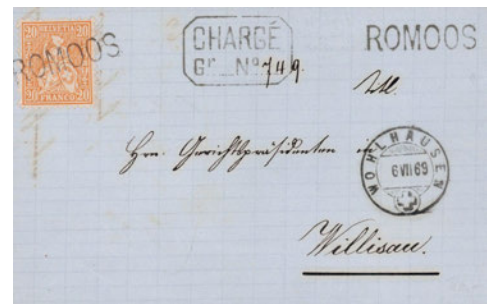 20 HELVETIA 20
20 FRANCO 20
ROMOOS
CHARGÉ
Gr. Nº 749.
ROMOOS
Hrn. Gerichtspräsidenten in
WOHLHAUSEN
6 VII 69
Willisau.